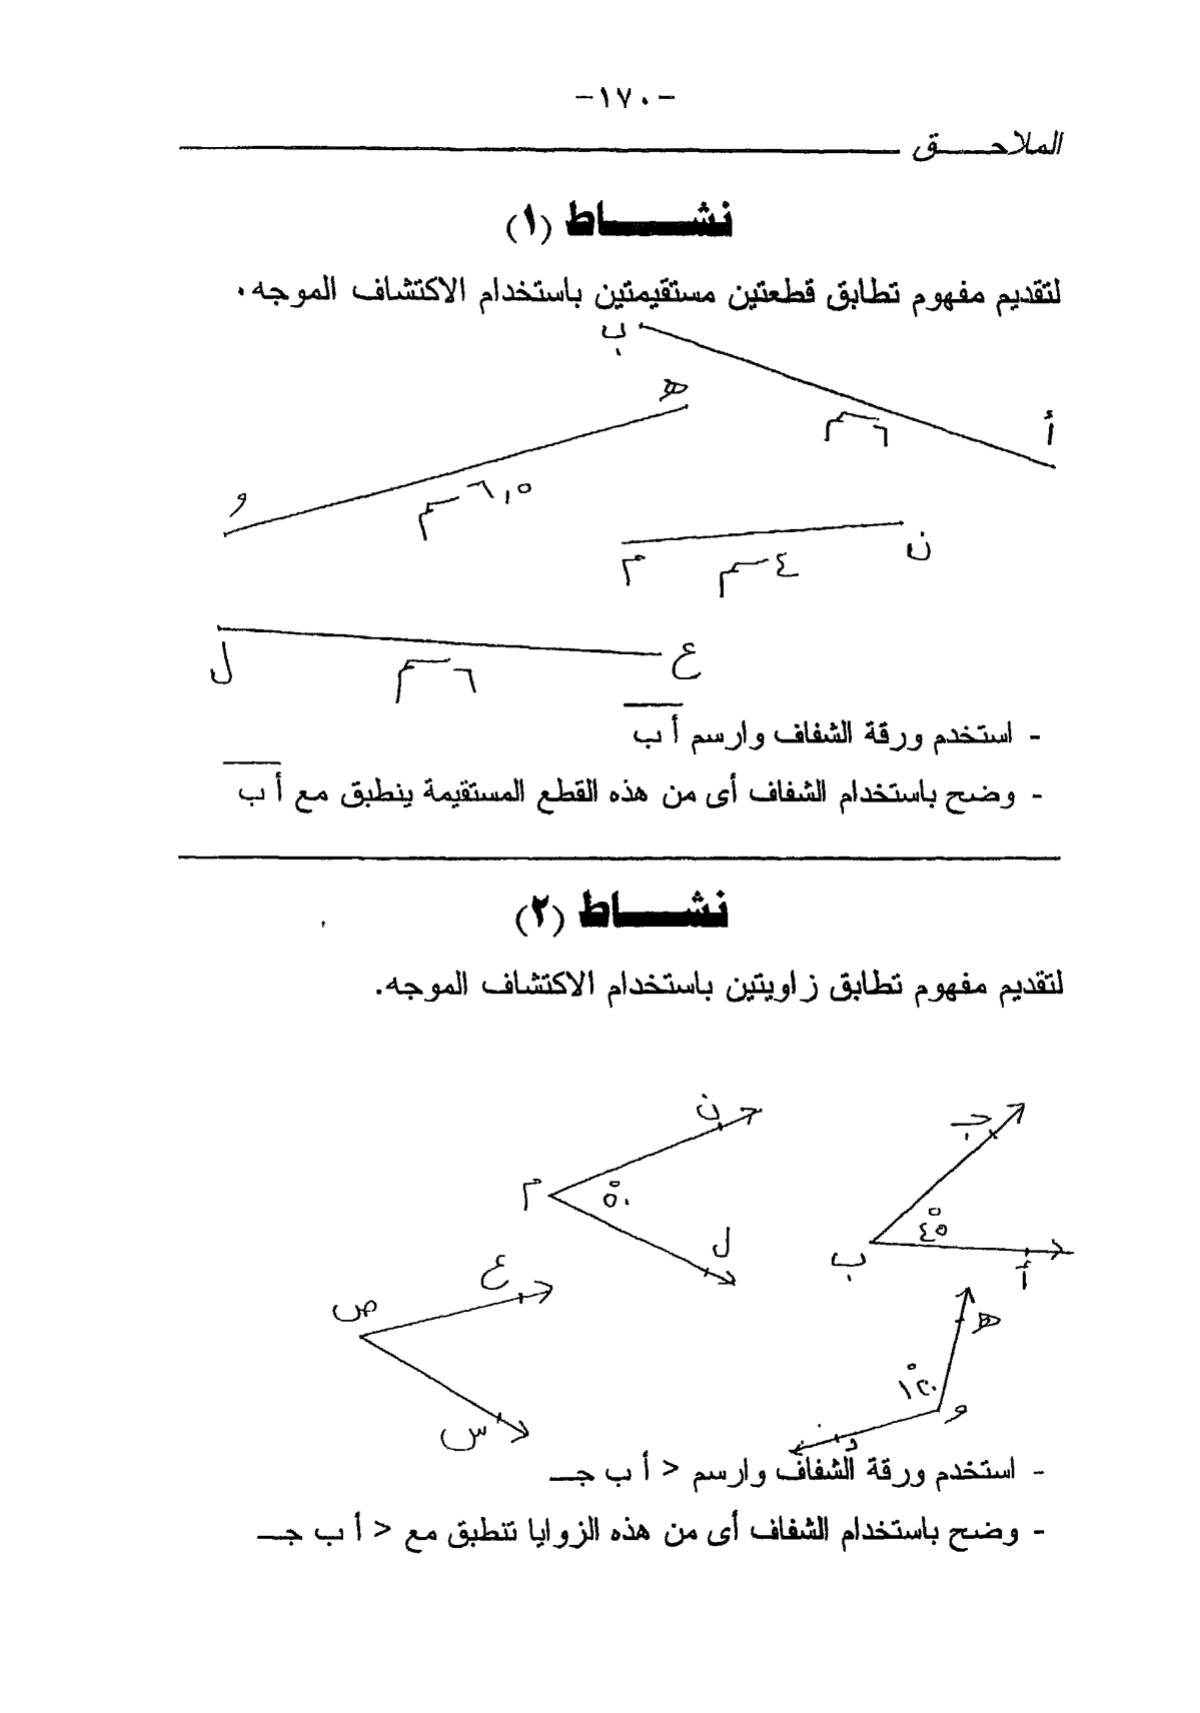 -١٧٠-
الملاحـــق
نشـــــاط (١)
لتقديم مفهوم تطابق قطعتين مستقيمتين باستخدام الاكتشاف الموجه.
ب
هـ
أ
٦سم
و
٦,٥سم
ن
م
٤سم
ل
ع
٦سم
- استخدم ورقة الشفاف وارسم أ ب
- وضح باستخدام الشفاف أى من هذه القطع المستقيمة ينطبق مع أ ب
نشـــــاط (٢)
لتقديم مفهوم تطابق زاويتين باستخدام الاكتشاف الموجه.
ن
جـ
م
٥٠°
ل
٤٥°
ب
أ
ع
ص
هـ
١٢٠°
و
س
د
- استخدم ورقة الشفاف وارسم > أ ب جــ
- وضح باستخدام الشفاف أى من هذه الزوايا تنطبق مع > أ ب جــ